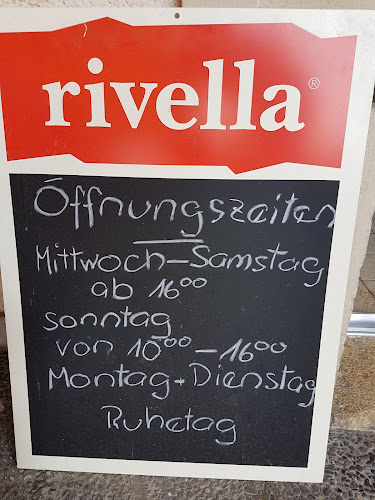 rivella®
Öffnungszeiten
Mittwoch-Samstag
ab 16⁰⁰
sonntag
von 10⁰⁰ - 16⁰⁰
Montag + Dienstag
Ruhetag